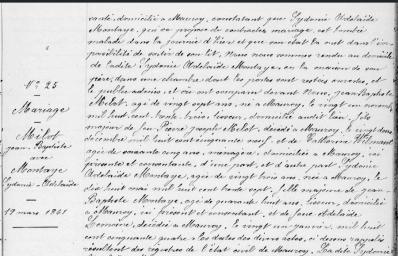 santé, domicilié à Maurois, constatant que Sydonie Adélaïde
Montaye, qui se propose de contracter mariage, est tombée
malade dans la journée d'hier et que son état la met dans l'im-
possibilité de sortir de son lit. Nous nous sommes rendu au domicile
de ladite Sydonie Adélaïde Montaye, en la maison de son
père, dans une chambre dont les portes sont restées ouvertes, et
le public admis, et où ont comparu devant Nous, Jean Baptiste
Mélot, âgé de vingt sept ans, né à Maurois, le vingt un
mil huit cent trente trois, tisseur, domicilié audit lieu, fils
majeur de feu joseph Mélot, décédé à Maurois, le vingt deux
décembre mil huit cent cinquante neuf, et de Catherine
âgée de cinquante cinq ans, ménagère, domiciliée à Maurois,
présente et consentante, d'une part, et d'autre part, Sydonie
Adélaïde Montaye, âgée de vingt trois ans, née à Maurois, le
dix huit mai mil huit cent trente sept, fille majeure de Jean-
Baptiste Montaye, âgé de quarante huit ans, tisseur, domicilié
à Maurois, ici présent et consentant, et de feue Adélaïde
Lemaire, décédée à Maurois, le vingt un janvier mil huit
cent cinquante quatre. Les dates des divers actes, ci dessus rappelés
résultent des registres de l'état civil de Maurois. Ladite Sydonie
N° 25
Mariage
Mélot
Jean-Baptiste
avec
Montaye
Sydonie-Adélaïde
19 mars 1861